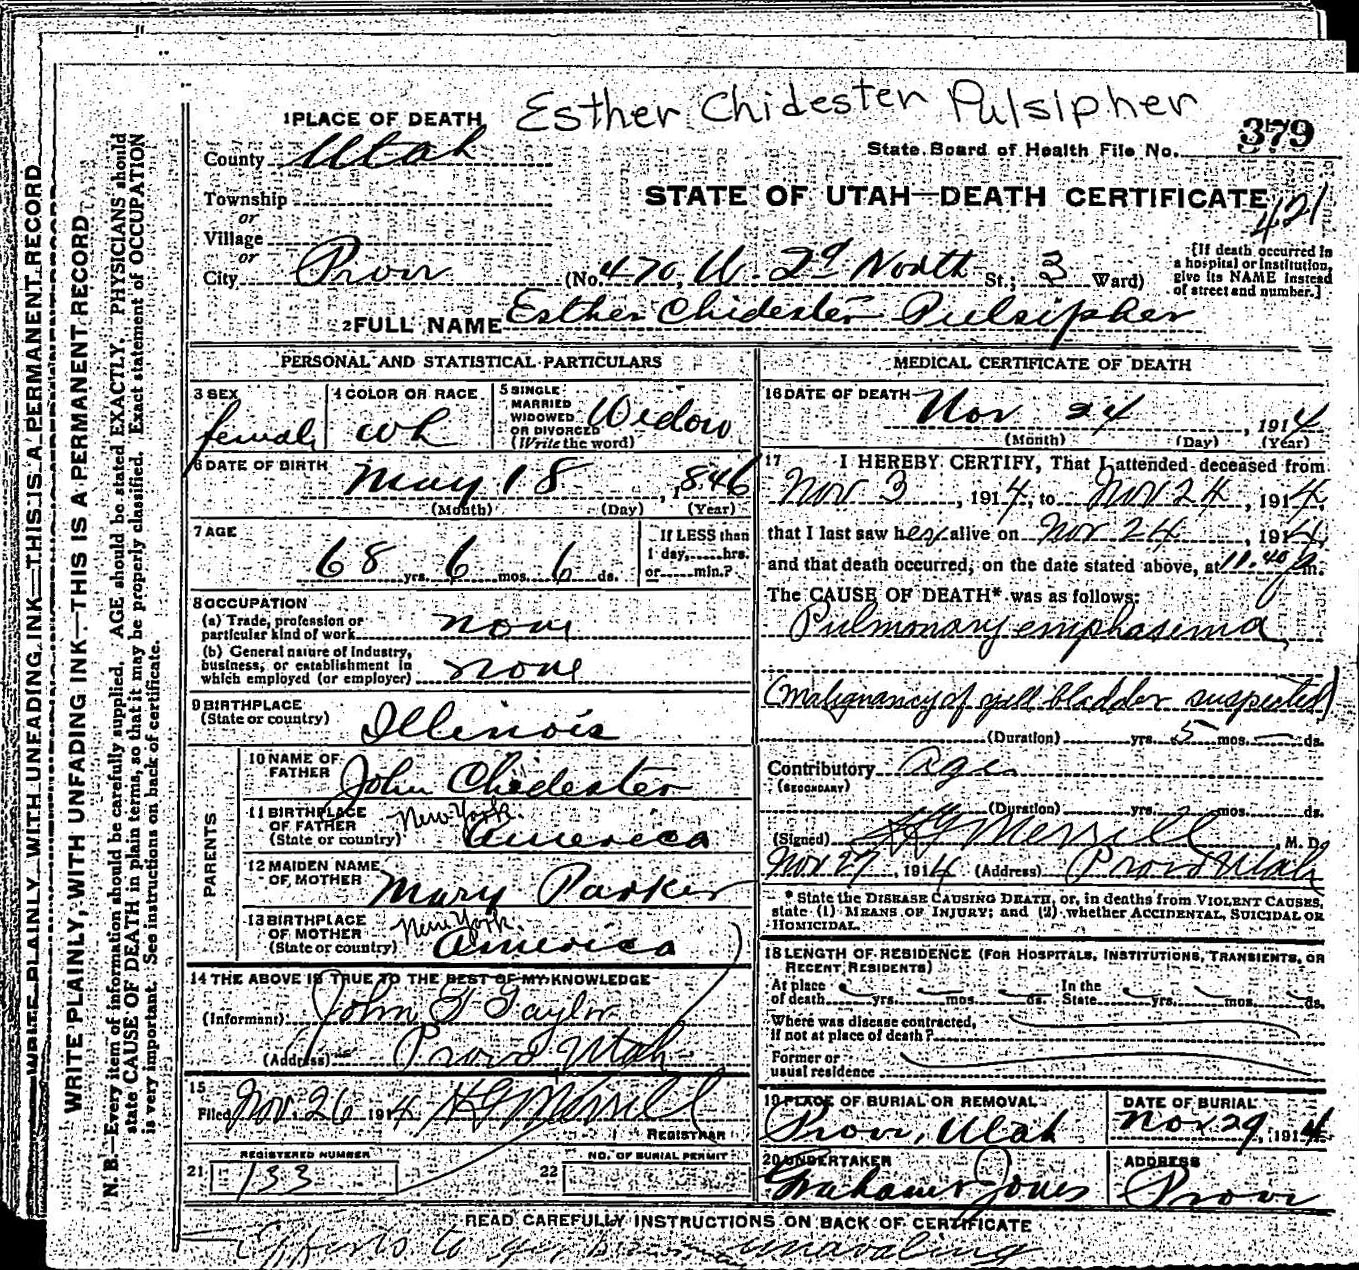 Esther Chidester Pulsipher
1 PLACE OF DEATH
County Utah
State Board of Health File No. 379
Township
or
STATE OF UTAH—DEATH CERTIFICATE
421
Village
or
City Provo (No. 470, W. 2d North St.; 3 Ward)
[If death occurred in
a hospital or institution,
give its NAME instead
of street and number.]
2 FULL NAME Esther Chidester Pulsipher
PERSONAL AND STATISTICAL PARTICULARS
3 SEX
female
4 COLOR OR RACE
wh
5 SINGLE
MARRIED
WIDOWED
OR DIVORCED
(Write the word)
Widow
6 DATE OF BIRTH
May 18, 1846
(Month) (Day) (Year)
7 AGE
68 yrs. 6 mos. 6 ds.
If LESS than
1 day,......hrs.
or......min.?
8 OCCUPATION
(a) Trade, profession or
particular kind of work none
(b) General nature of industry,
business, or establishment in
which employed (or employer) none
9 BIRTHPLACE
(State or country) Illinois
PARENTS
10 NAME OF
FATHER John Chidester
11 BIRTHPLACE
OF FATHER
(State or country) New York. America
12 MAIDEN NAME
OF MOTHER Mary Parker
13 BIRTHPLACE
OF MOTHER
(State or country) New York. America
14 THE ABOVE IS TRUE TO THE BEST OF MY KNOWLEDGE
(Informant) John F Taylor
(Address) Provo, Utah
15
Filed Nov. 26 1914 H G Merrill
REGISTRAR
21 REGISTERED NUMBER
133
22 NO. OF BURIAL PERMIT
MEDICAL CERTIFICATE OF DEATH
16 DATE OF DEATH
Nov 24, 1914
(Month) (Day) (Year)
17 I HEREBY CERTIFY, That I attended deceased from
Nov 3, 1914, to Nov 24, 1914,
that I last saw her alive on Nov 24, 1914,
and that death occurred, on the date stated above, at 11.40 P m.
The CAUSE OF DEATH* was as follows:
Pulmonary emphasima
(Malignancy of gall bladder suspected)
(Duration) yrs. 5 mos. — ds.
Contributory Age
(SECONDARY)
(Duration) yrs. mos. ds.
(Signed) H G Merrill M. D.
Nov 27, 1914 (Address) Provo Utah
* State the DISEASE CAUSING DEATH, or, in deaths from VIOLENT CAUSES,
state (1) MEANS OF INJURY; and (2) whether ACCIDENTAL, SUICIDAL OR
HOMICIDAL.
18 LENGTH OF RESIDENCE (FOR HOSPITALS, INSTITUTIONS, TRANSIENTS, OR
RECENT RESIDENTS)
At place In the
of death yrs. mos. ds. State yrs. mos. ds.
Where was disease contracted,
if not at place of death?
Former or
usual residence
19 PLACE OF BURIAL OR REMOVAL
Provo, Utah
DATE OF BURIAL
Nov 29, 1914
20 UNDERTAKER
Graham & Jones
ADDRESS
Provo
READ CAREFULLY INSTRUCTIONS ON BACK OF CERTIFICATE
Efforts to unavaling
WRITE PLAINLY, WITH UNFADING INK—THIS IS A PERMANENT RECORD
WRITE PLAINLY, WITH UNFADING INK—THIS IS A PERMANENT RECORD
N. B.—Every item of information should be carefully supplied. AGE should be stated EXACTLY. PHYSICIANS should
state CAUSE OF DEATH in plain terms, so that it may be properly classified. Exact statement of OCCUPATION
is very important. See instructions on back of certificate.